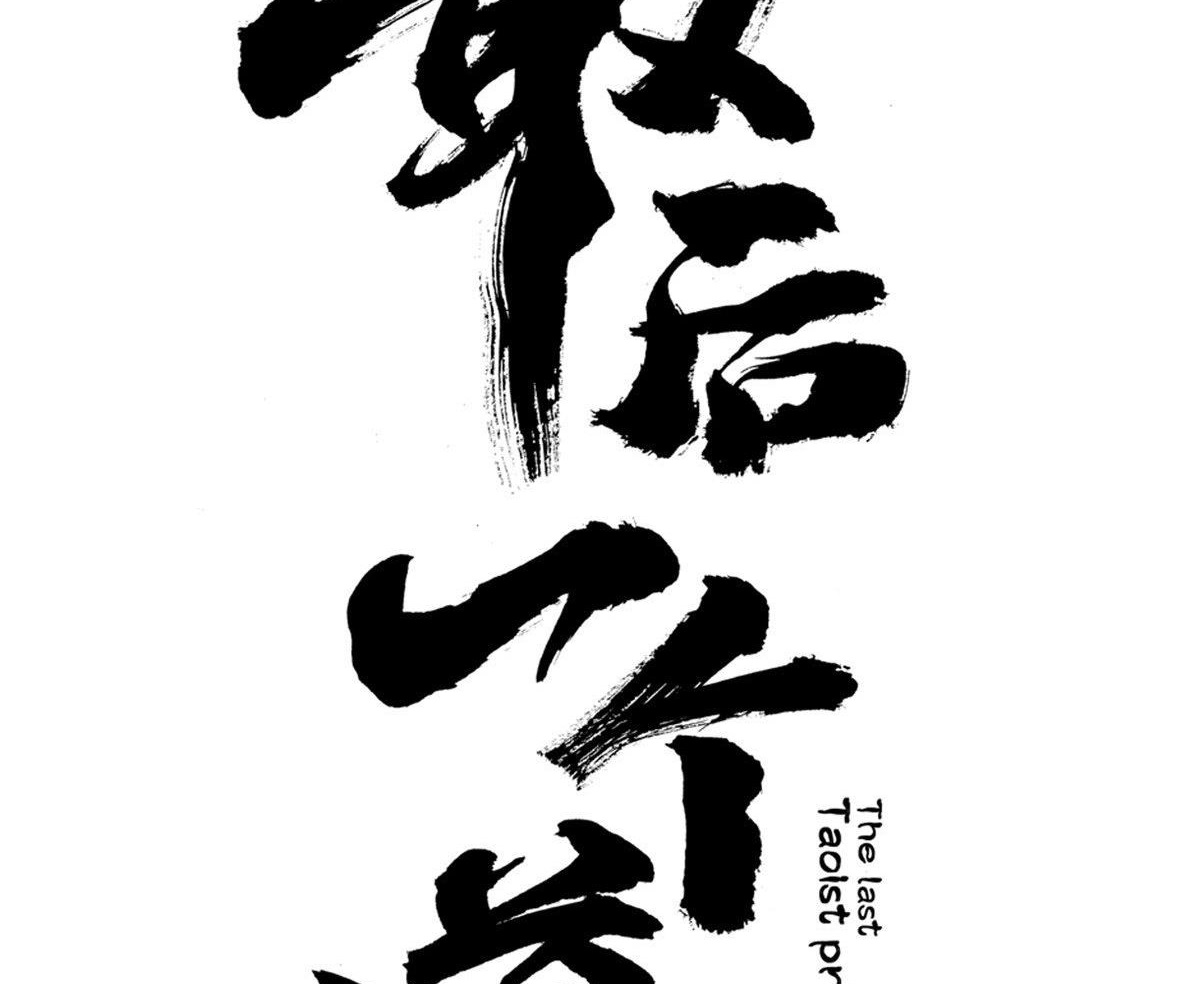 最后
一个
The last
Taoist pr